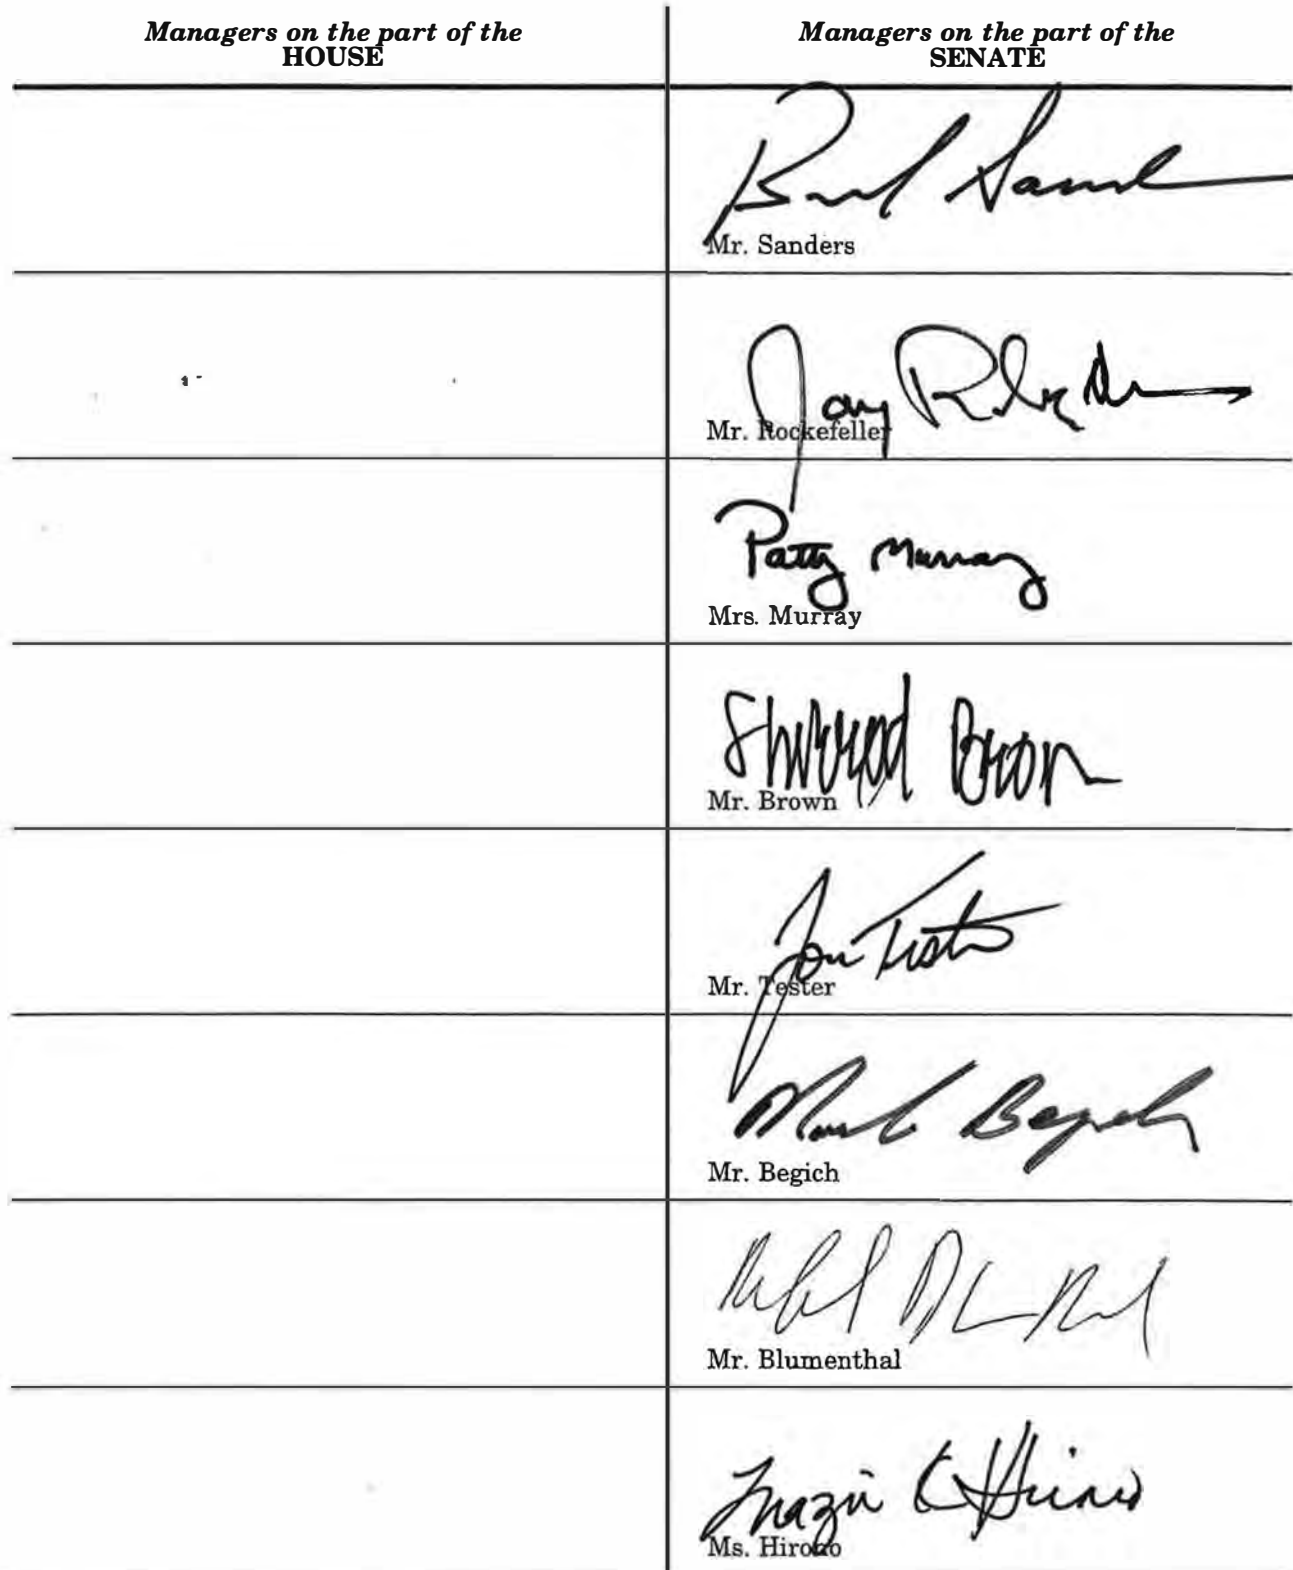 Managers on the part of the
HOUSE
Managers on the part of the
SENATE
Mr. Sanders
Jay
Mr. Rockefeller
Patty Murray
Mrs. Murray
Sherrod Brown
Mr. Brown
Jon Tester
Mr. Tester
Mark Begich
Mr. Begich
Mr. Blumenthal
Mazie K Hirono
Ms. Hirono